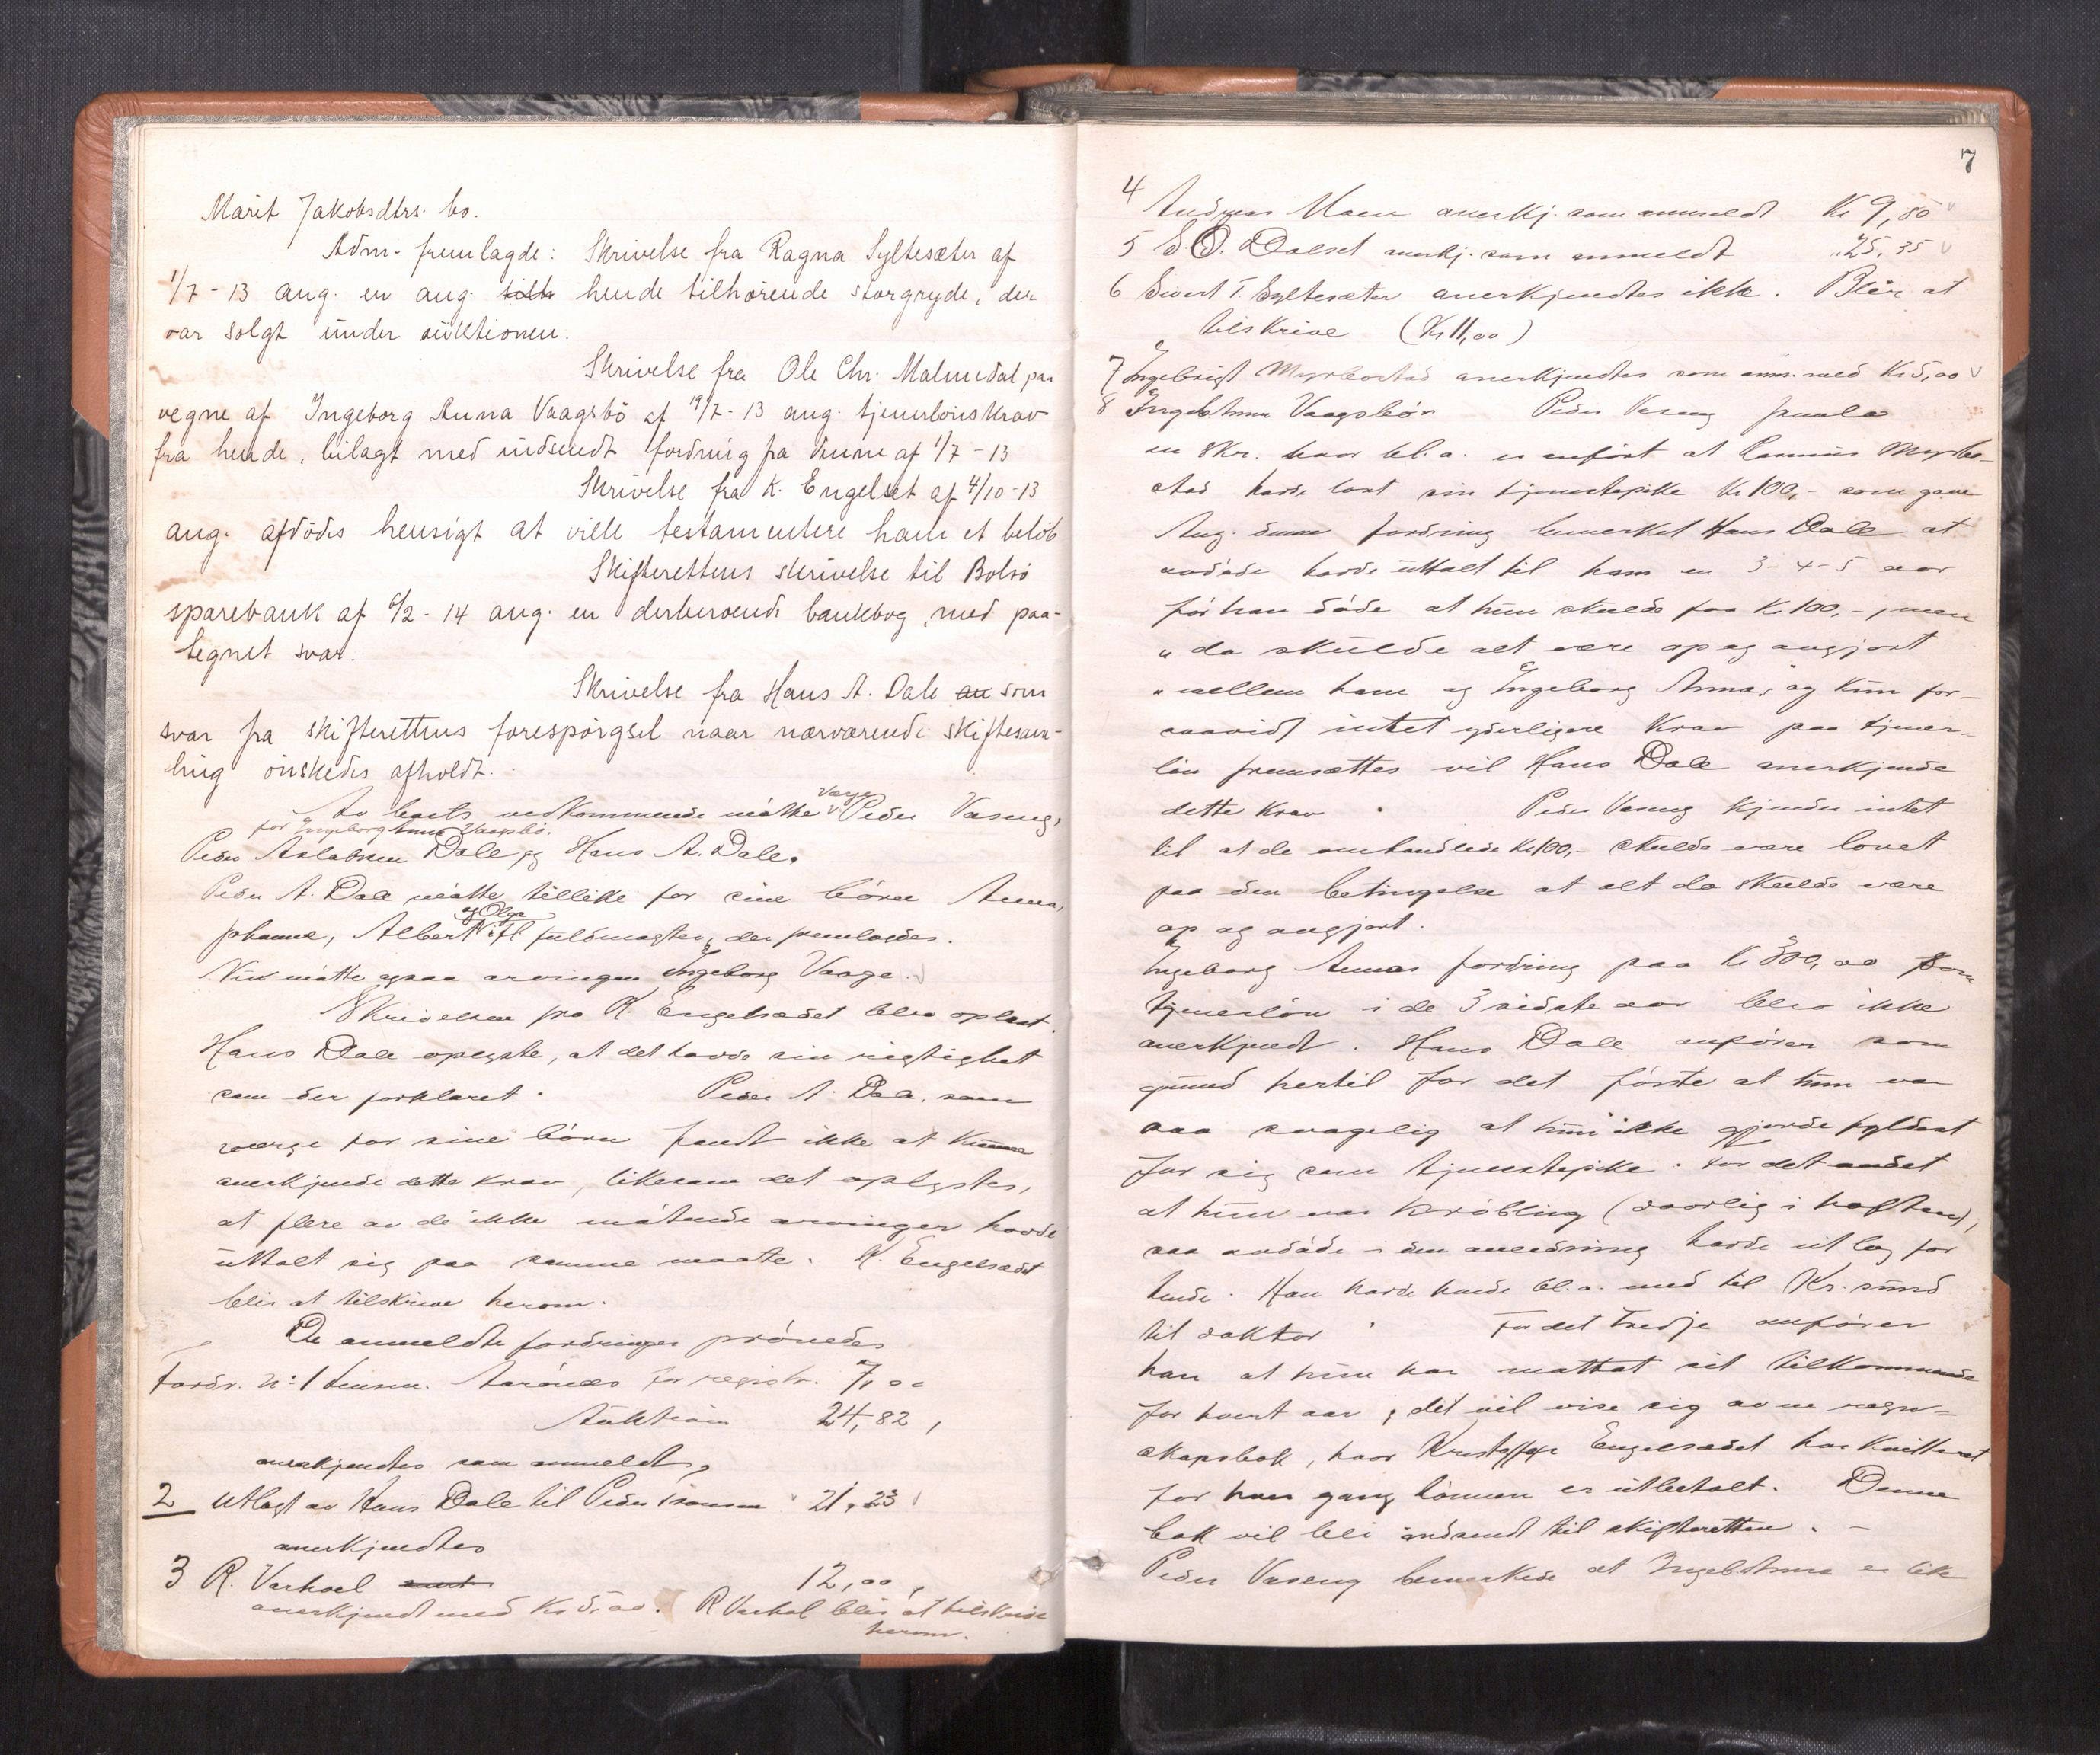 Marit Jakobsdtrs. bo.
Adm. fremlagde: Skrivelse fra Ragna Syltesæter af
1/7-13 ang. en ang. tilh hende tilhørende storgryde, der
var solgt under auktionen.
Skrivelse fra Ole Chr. Malmedal paa
vegne af Ingeborg Anna Vaagsbö af 19/7-13 ang. tjenerlönskrav
fra hende, bilagt med indsendt fordring fra denne af 1/7-13
Skrivelse fra K. Engelset af 4/10-13
ang. afdödes hensigt at ville testamentere ham et belöb
Skifterettens skrivelse til Bolsö
sparebank af 6/2-14 ang. en derberoende bankbog, med paa-
tegnet svar.
Skrivelse fra Hans A. Dale an som
svar fra skifterettens forespörgsel naar nærværende skiftesam-
ling önskedes afholdt.
Av boets vedkommende mötte verge Peder Vaseng,
for Ingeborg Anna Vaagsbö.
Peder Aslaksen Dale og Hans A. Dale.
Peder A. Dale mötte tillike for sine börn Anna,
Johanne, Albert og Olga fuldmagter, der fremlagdes.
Nu mötte ogsaa arvingen Ingeborg Vaage.
Skrivelsen fra K. Engelsædet blev oplæst.
Hans Dale oplyste, at det havde sin rigtighet
som der forklaret. Peder A. Dale, som
værge for sine börn fandt ikke at kunne
anerkjende dette krav, likesom det oplystes,
at flere av de ikke mötende arvinger havde
uttalt sig paa samme maate. K. Engelsædet
blir at tilskrive herom.
De anmeldte fordringer prövedes
Fordr. no 1 Lensm. Aarönæs for registr. 7,00
Auktion 24,82,
anerkjendtes som anmeldt,
2 Utlagt av Hans Dale til Peder 21,23
anerkjendtes
3 R. Varhoel 12,00,
anerkjendt med Kr 5,00. R Varhol blir at tilskrive
herom.
7
4 Andreas Moen anerkj. som anmeldt Kr 9,80
5 S. O. Dalset anerkj. som anmeldt " 25,35
6 Sivert T. Syltesæter anerkjendtes ikke. Blir at
tilskrive (Kr 11,00)
7 Ingebrigt Myrbostad anerkjendtes som anm. med Kr 5,00
8 Ingeb. Anna Vaagsbö. Peder Vaseng fremla
en skr. hvor bl.a. er anfört at Rasmus Myrbo-
stad havde lovt sin tjenestepike Kr 100,- som gave
Ang. denne fordring bemerket Hans Dale at
avdöde havde uttalt til ham en 3-4-5 aar
för han döde at hun skulde faa Kr 100,-, men
" da skulde alt være op og avgjort
" mellem ham og Ingeborg Anna," og kun for-
saavidt intet yderligere krav paa tjener-
lön fremsættes vil Hans Dale anerkjende
dette krav. Peder Vaseng kjender intet
til at de omhandlede Kr 100,- skulde være lovet
paa den betingelse at alt da skulde være
op og avgjort.
Ingeborg Annas fordring paa Kr 300,00 som
tjenerlön i de 3 sidste aar blev ikke
anerkjendt. Hans Dale anförer som
grund hertil for det förste at hun var
saa svagelig at hun ikke gjorde fyldest
for sig som tjenestepike. For det andet
at hun var kröbling (daarlig i hoften),
saa avdöde i den anledning havde utlæg for
hende. Han havde hende bl.a. med til Kr.sund
til doktor. For det tredje anförer
han at hun har mottat sit tilkommende
for hvert aar, det vil vise sig av en regn-
skapsbok, hvor Kristoffer Engelsædet har kvitteret
for hver gang lönnen er utbetalt. Denne
bok vil bli indsendt til skifteretten. -
Peder Vaseng bemerkede at Ingeb. Anna er like